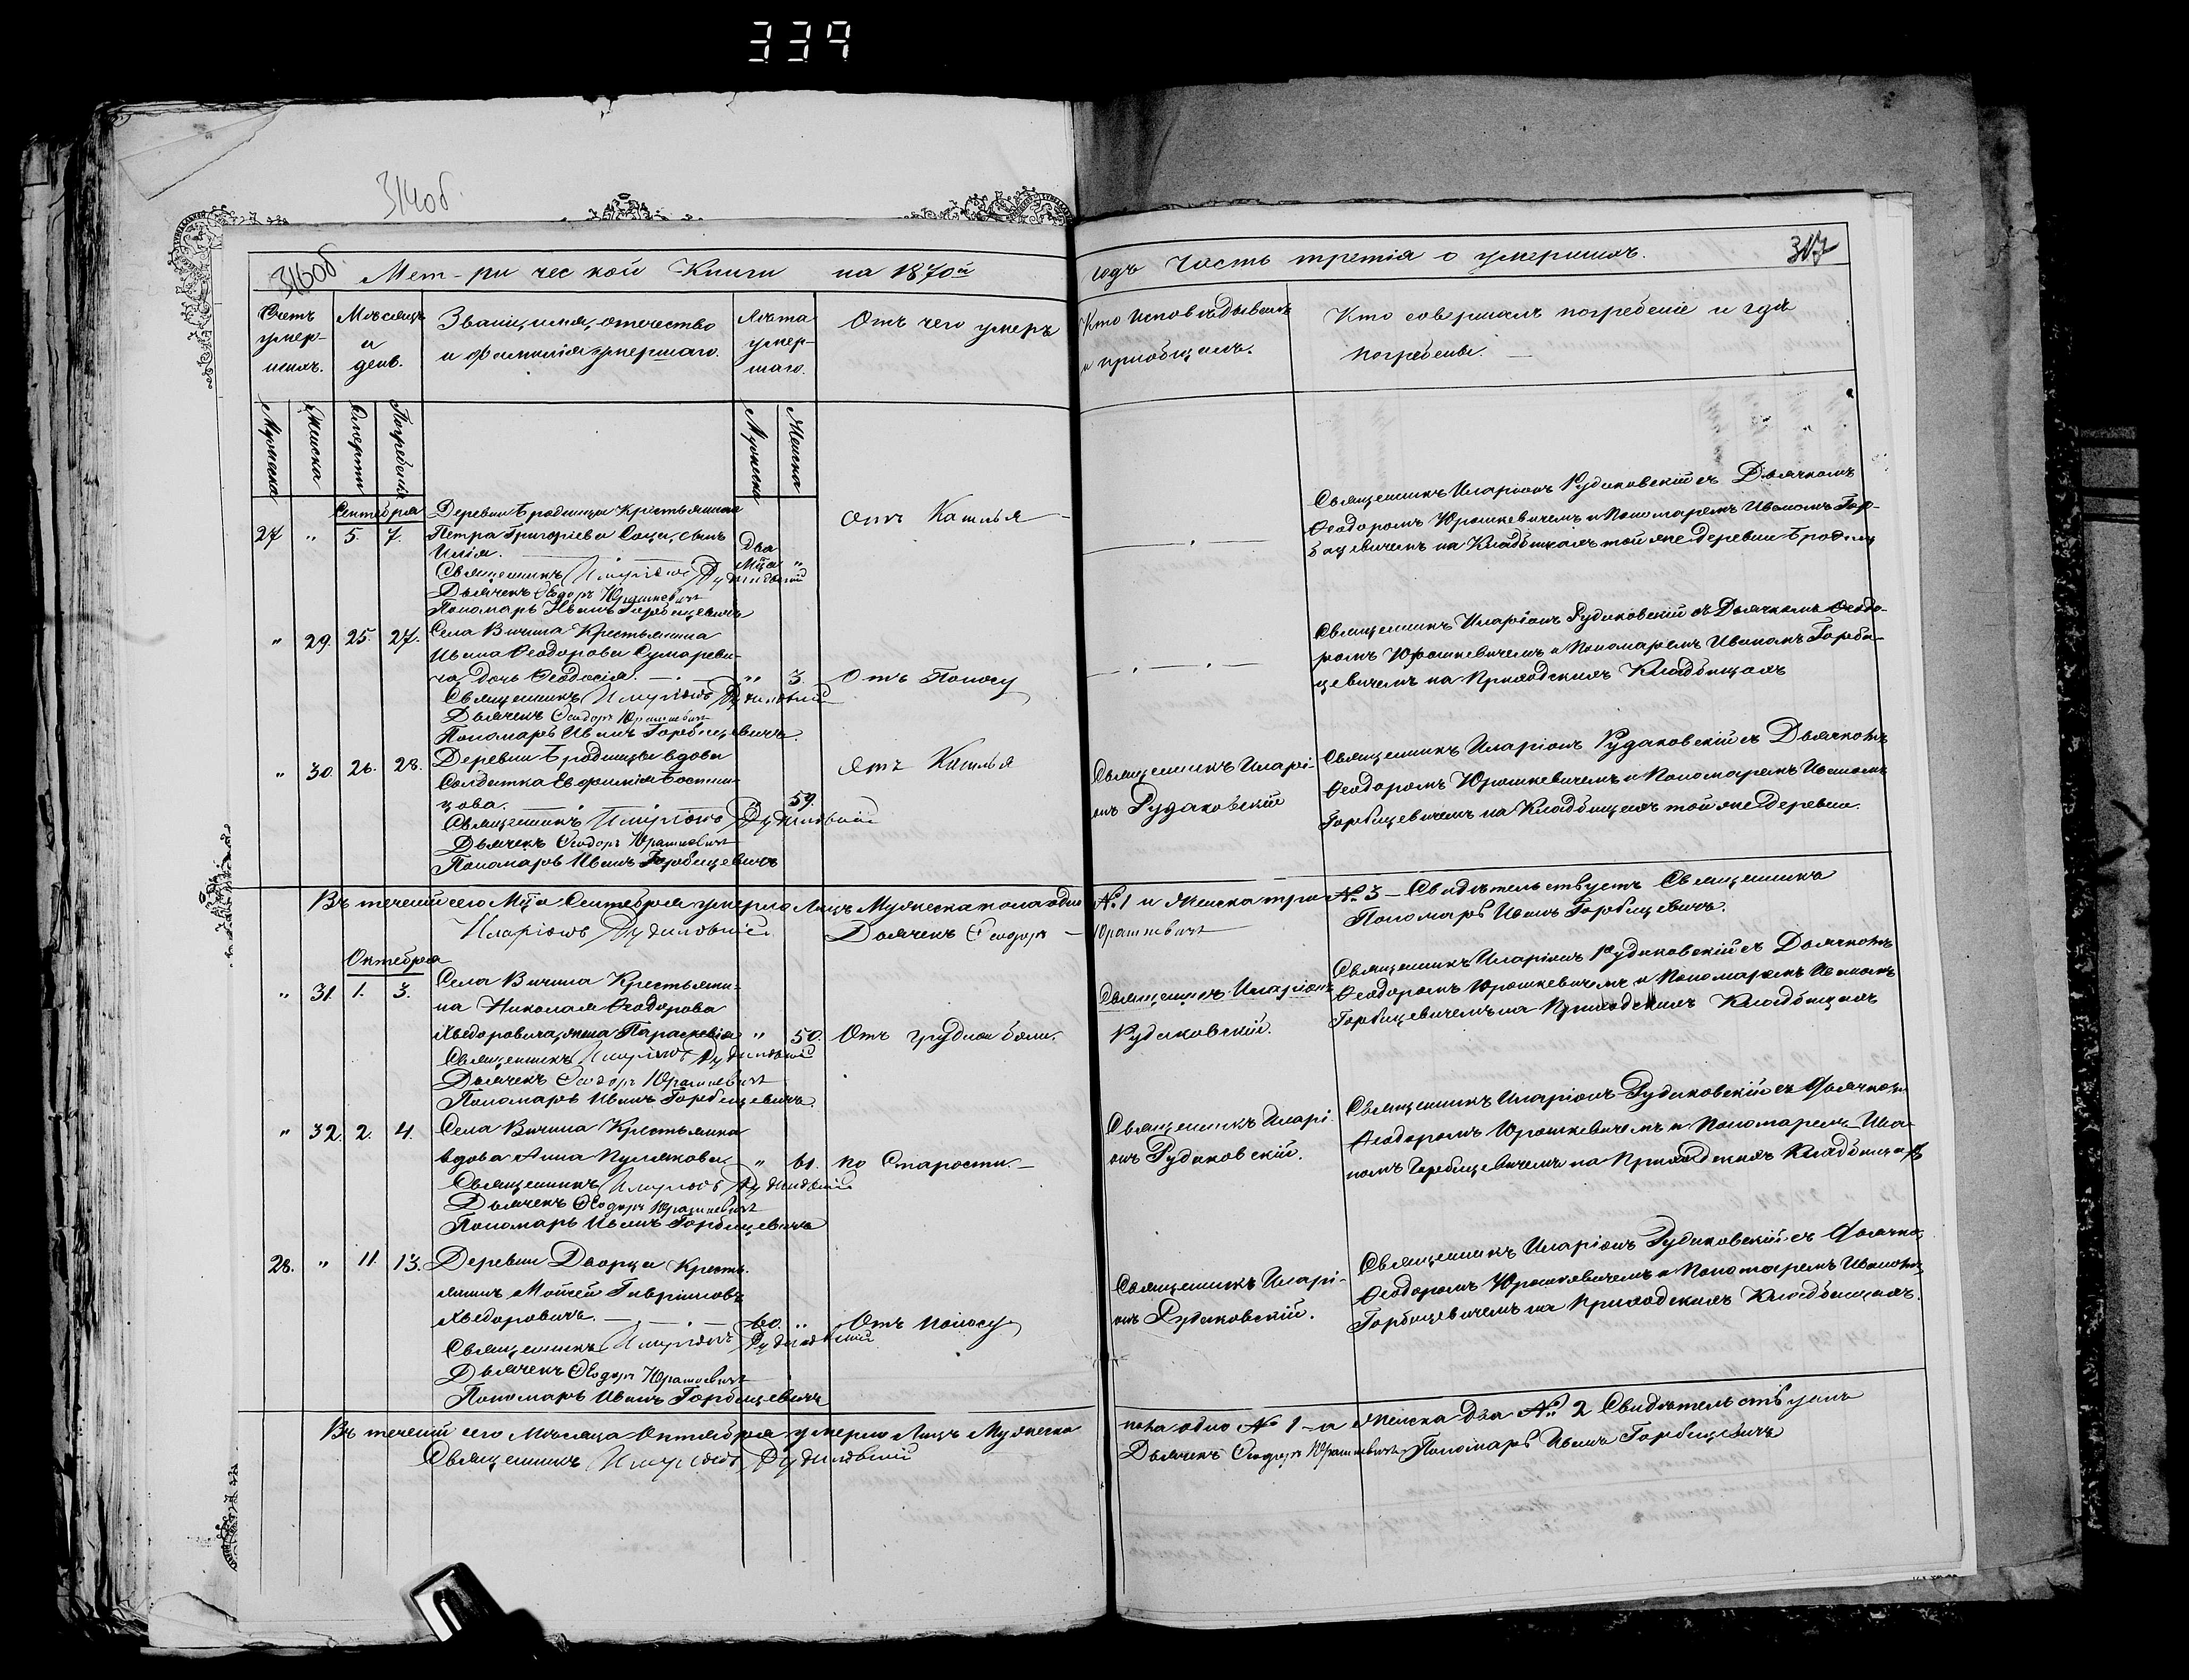 339
314об.
316об. Мет-ри чес кой Книги на 1870й
годъ Часть третія о умершихъ.
317
Счетъ умер- шихъ.
Мѣсяцъ и день.
Званіе, имя, отечество и фамилія умершаго.
Лѣта умер- шаго.
Отъ чего умеръ
Кто исповѣдывалъ и пріобщалъ.
Кто совершалъ погребеніе и гдѣ погребены.
Мужеска
Женска
Смерти
Погребенія
Мужеска
Женска
Сентября
27 " 5. 7.
Деревни Бродница Крестьянина
Петра Григоріева Саца, сынъ
Илія.
Два Мца "
Отъ Кашлья
Священникъ Иларіонъ Рудаковскій
Дьячекъ Ѳеодоръ Юрашкевичъ
Пономарь Иванъ Горбацевичъ
Священникъ Иларіонъ Рудаковскій съ Дьячкомъ
Ѳеодоромъ Юрашкевичемъ и Пономаремъ Иваномъ Гор-
бацевичемъ на Кладбищахъ той же деревни Бродниц
" 29. 25. 27.
Села Вичина Крестьянина
Ивана Ѳеодорова Сумареви-
ча, дочь Ѳеодосія.
" 3
Отъ Поносу
Священникъ Иларіонъ Рудаковскій
Дьячекъ Ѳеодоръ Юрашкевичъ
Пономарь Иванъ Горбацевичъ.
Священникъ Иларіонъ Рудаковскій съ Дьячкомъ Ѳеодо-
ромъ Юрашкевичемъ и Пономаремъ Иваномъ Горба-
цевичемъ на Приходскихъ Кладбищахъ
" 30. 26. 28.
Деревни Бродницы вдова
Солдатка Евфимія
цова.
" 59.
Отъ Кашлья
Священникъ Иларіонъ Рудаковскій
Дьячекъ Ѳеодоръ Юрашкевичъ
Пономарь Иванъ Горбацевичъ
Священникъ Иларі-
онъ Рудаковскій
Священникъ Иларіонъ Рудаковскій съ Дьячкомъ
Ѳеодоромъ Юрашкевичемъ и Пономаремъ Иваномъ
Горбацевичемъ на Кладбищахъ той же деревни.
Въ теченіи сего Мца Сентября умерло Лицъ Мужеска пола одно № 1 и Женска три № 3 – Свидѣтельствуетъ Священникъ
Иларіонъ Рудаковскій Дьячекъ Ѳеодоръ Юрашкевичъ Пономарь Иванъ Горбацевичъ.
Октября
" 31. 1. 3.
Села Вичина Крестьяни-
на Николая Ѳеодорова
Хведоровича, жена Параскевія
" 50.
Отъ грудной боли.
Священникъ Иларіонъ Рудаковскій
Дьячекъ Ѳеодоръ Юрашкевичъ
Пономарь Иванъ Горбацевичъ.
Священникъ Иларіонъ
Рудаковскій.
Священникъ Иларіонъ Рудаковскій съ Дьячкомъ
Ѳеодоромъ Юрашкевичемъ и Пономаремъ Иваномъ
Горбацевичемъ на Приходскихъ Кладбищахъ
" 32. 2. 4.
Села Вичина Крестьянка
вдова Анна
" 61.
по Старости.
Священникъ Иларіонъ Рудаковскій
Дьячекъ Ѳеодоръ Юрашкевичъ
Пономарь Иванъ Горбацевичъ
Священникъ Иларі-
онъ Рудаковскій.
Священникъ Иларіонъ Рудаковскій съ Дьячкомъ
Ѳеодоромъ Юрашкевичемъ и Пономаремъ Ива-
номъ Горбацевичемъ на Приходскихъ Кладбищахъ
28. " 11. 13.
Деревни Дворца Кресть-
янинъ Мойсей Гавриловъ
Хведоровичъ.
60. "
Отъ поносу
Священникъ Иларіонъ Рудаковскій
Дьячекъ Ѳеодоръ Юрашкевичъ
Пономарь Иванъ Горбацевичъ
Священникъ Иларі-
онъ Рудаковскій.
Священникъ Иларіонъ Рудаковскій съ Дьячко
Ѳеодоромъ Юрашкевичемъ и Пономаремъ Иваномъ
Горбацевичемъ на Приходскихъ Кладбищахъ.
Въ теченіи сего Мѣсяца Октября умерло Лицъ Мужеска пола одно № 1 – а Женска два № 2 Свидѣтельствуемъ
Священникъ Иларіонъ Рудаковскій Дьячекъ Ѳеодоръ Юрашкевичъ Пономарь Иванъ Горбацевичъ